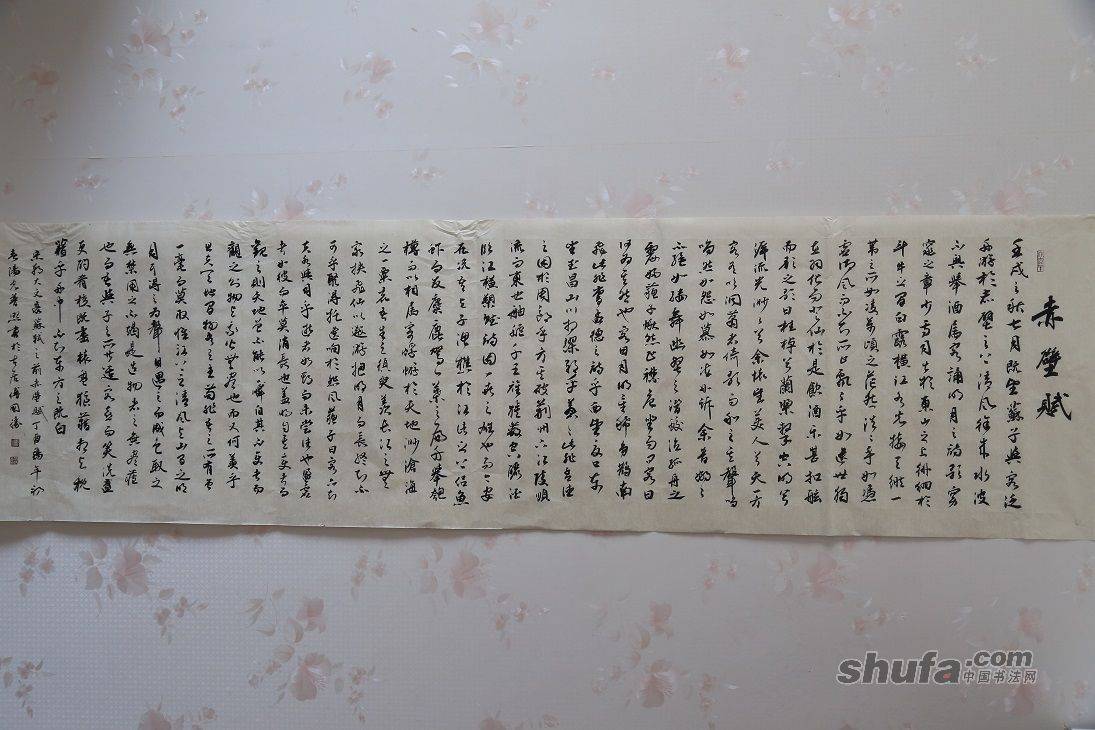 赤壁賦
壬戌之秋七月既望蘇子與客泛
舟游於赤壁之下清風徐來水波
不興舉酒屬客誦明月之詩歌窈
窕之章少焉月出於東山之上徘徊於
斗牛之間白露橫江水光接天縱一
葦之所如凌萬頃之茫然浩浩乎如馮
虛御風而不知其所止飄飄乎如遺世獨
立羽化而登仙於是飲酒樂甚扣舷
而歌之歌曰桂棹兮蘭槳擊空明兮
溯流光渺渺兮余懷望美人兮天一方
客有吹洞簫者倚歌而和之其聲嗚
嗚然如怨如慕如泣如訴余音嫋嫋
不絕如縷舞幽壑之潛蛟泣孤舟之
嫠婦蘇子愀然正襟危坐而問客曰
何為其然也客曰月明星稀烏鵲南
飛此非曹孟德之詩乎西望夏口東
望武昌山川相繆鬱乎蒼蒼此非孟德
之困於周郎乎方其破荊州下江陵順
流而東也舳艫千里旌旗蔽空釃酒
臨江橫槊賦詩固一世之雄也而今安
在哉況吾與子漁樵於江渚之上侶魚
蝦而友麋鹿駕一葉之扁舟舉匏
樽以相屬寄蜉蝣於天地渺滄海
之一粟哀吾生之須臾羨長江之無
窮挾飛仙以遨游抱明月而長終知不
可乎驟得托遺響於悲風蘇子曰客亦知
夫水與月乎逝者如斯而未嘗往也盈虛
者如彼而卒莫消長也蓋將自其變者而
觀之則天地曾不能以一瞬自其不變者而
觀之則物與我皆無盡也而又何羨乎
且夫天地之間物各有主苟非吾之所有雖
一毫而莫取惟江上之清風與山間之明
月耳得之為聲目遇之而成色取之
無禁用之不竭是造物者之無盡藏
也而吾與子之所共適客喜而笑洗盞
更酌肴核既盡杯盤狼藉相與枕
藉乎舟中不知東方之既白
大文豪蘇軾之前赤壁賦丁酉年初
shufa.com
中国书法网